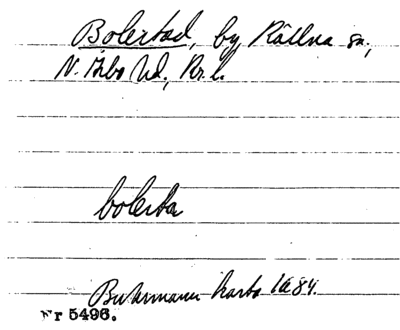 Bolerstad, by Källna sn,
N. Åsbo hd, Kr. l.
bolersta
Buhrmanns karta 1684.
Nr 5496.